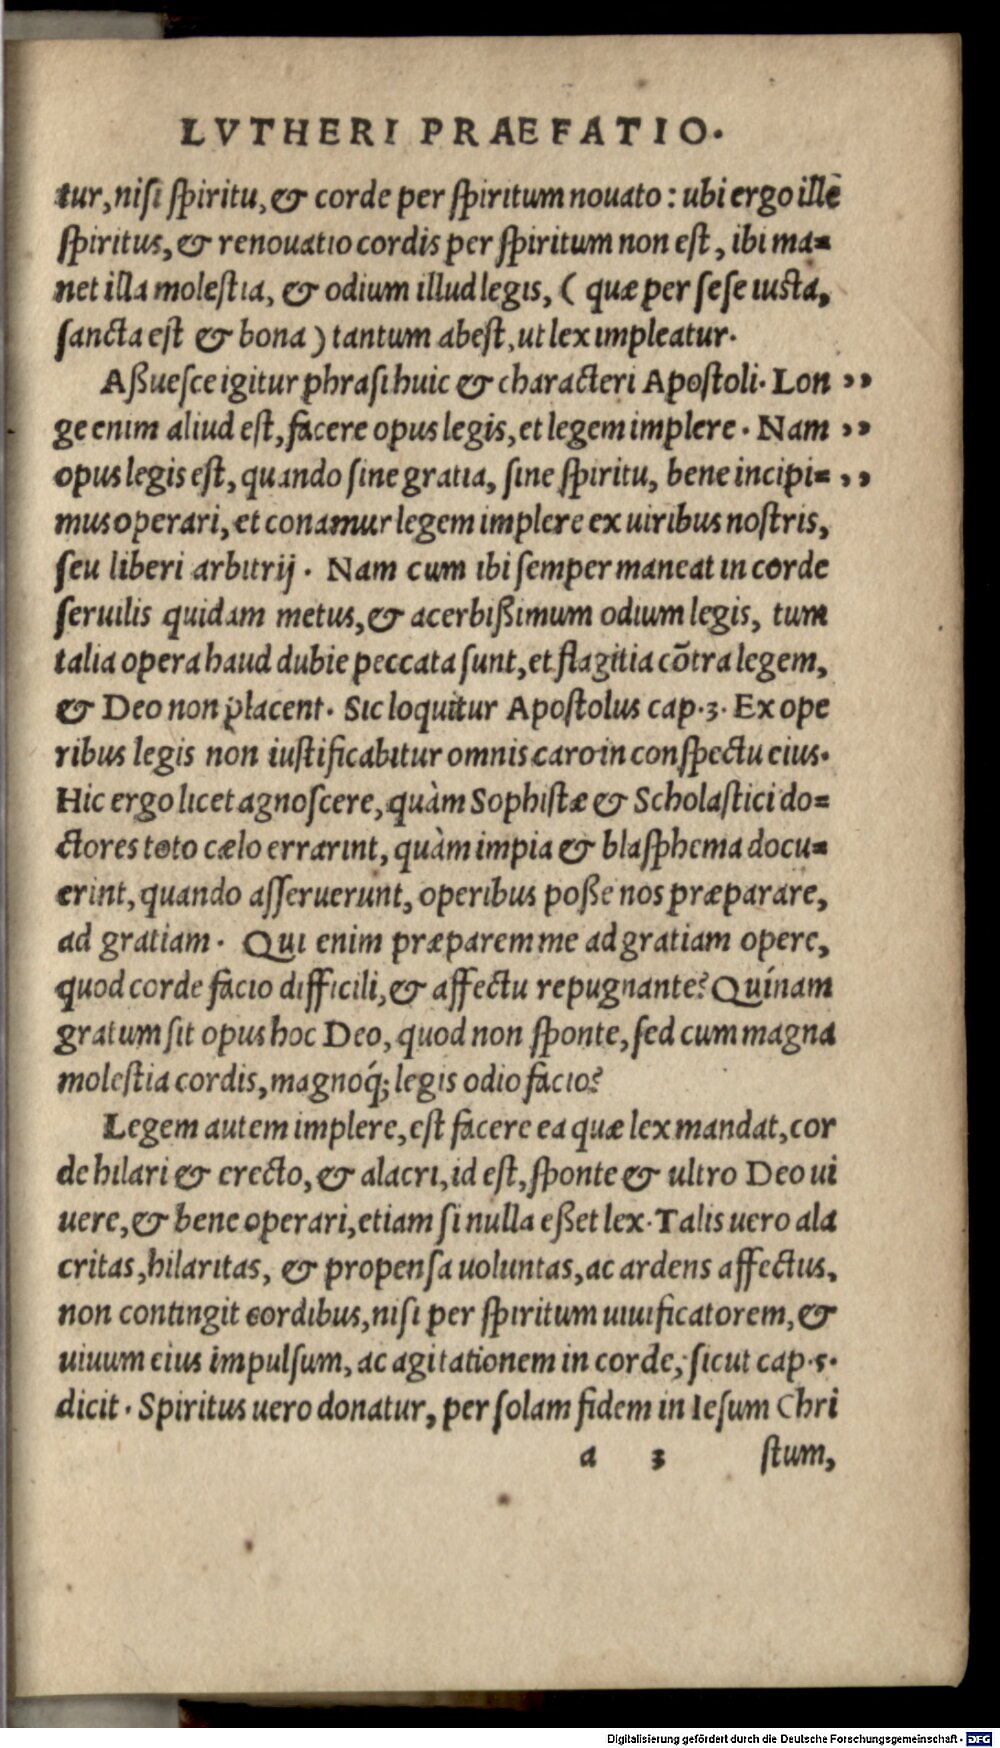 LVTHERI PRAEFATIO.
tur, nisi spiritu, & corde per spiritum nouato: ubi ergo ille
spiritus, & renouatio cordis per spiritum non est, ibi ma=
net illa molestia, & odium illud legis, ( quæ per sese iusta,
sancta est & bona ) tantum abest, ut lex impleatur.
Aßuesce igitur phrasi huic & characteri Apostoli. Lon ,,
ge enim aliud est, facere opus legis, et legem implere. Nam ,,
opus legis est, quando sine gratia, sine spiritu, bene incipi= ,,
mus operari, et conamur legem implere ex uiribus nostris,
seu liberi arbitrij. Nam cum ibi semper maneat in corde
seruilis quidam metus, & acerbißimum odium legis, tum
talia opera haud dubie peccata sunt, et flagitia cõtra legem,
& Deo non placent. Sic loquitur Apostolus cap.3. Ex ope
ribus legis non iustificabitur omnis caro in conspectu eius.
Hic ergo licet agnoscere, quàm Sophistæ & Scholastici do=
ctores toto cælo errarint, quàm impia & blasphema docu=
erint, quando asseruerunt, operibus poße nos præparare,
ad gratiam. Qui enim præparem me ad gratiam opere,
quod corde facio difficili, & affectu repugnante? Quínam
gratum sit opus hoc Deo, quod non sponte, sed cum magna
molestia cordis, magnoq́; legis odio facio?
Legem autem implere, est facere ea quæ lex mandat, cor
de hilari & erecto, & alacri, id est, sponte & ultro Deo ui
uere, & bene operari, etiam si nulla eßet lex. Talis uero ala
critas, hilaritas, & propensa uoluntas, ac ardens affectus,
non contingit cordibus, nisi per spiritum uiuificatorem, &
uiuum eius impulsum, ac agitationem in corde, sicut cap.5.
dicit. Spiritus uero donatur, per solam fidem in Iesum Chri
a 3 stum,
Digitalisierung gefördert durch die Deutsche Forschungsgemeinschaft - DFG